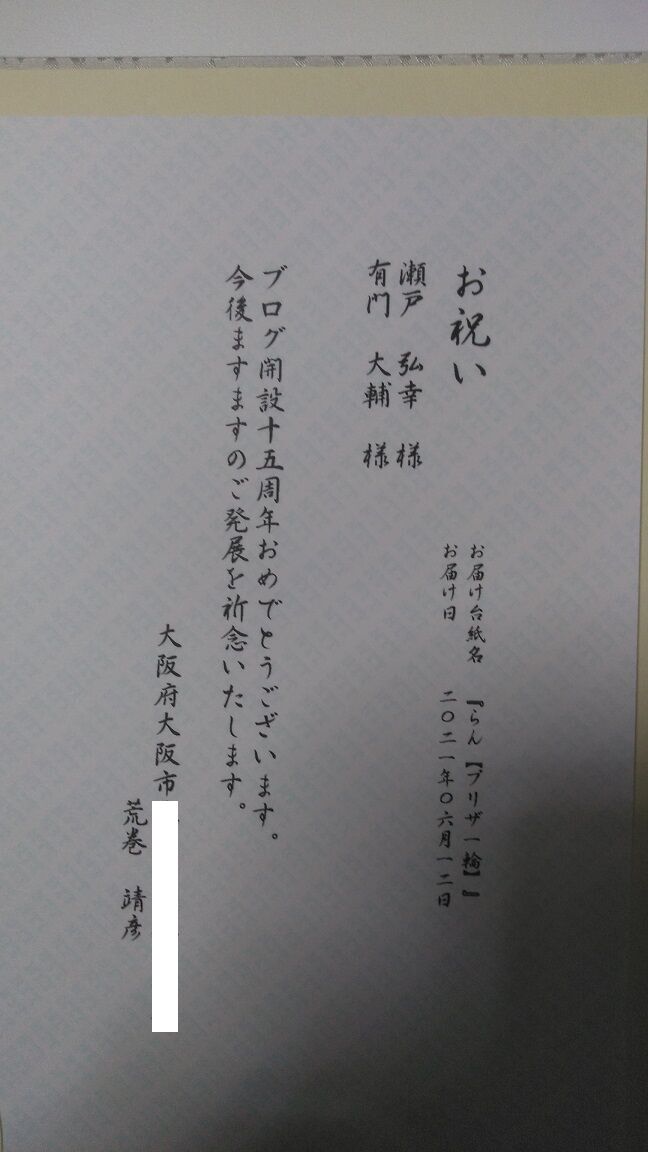 お祝い
お届け台紙名 『らん【プリザ一輪】』
お届け日 二〇二一年〇六月一二日
瀬戸 弘幸 様
有門 大輔 様
ブログ開設十五周年おめでとうございます。
今後ますますのご発展を祈念いたします。
大阪府大阪市
荒巻 靖彦